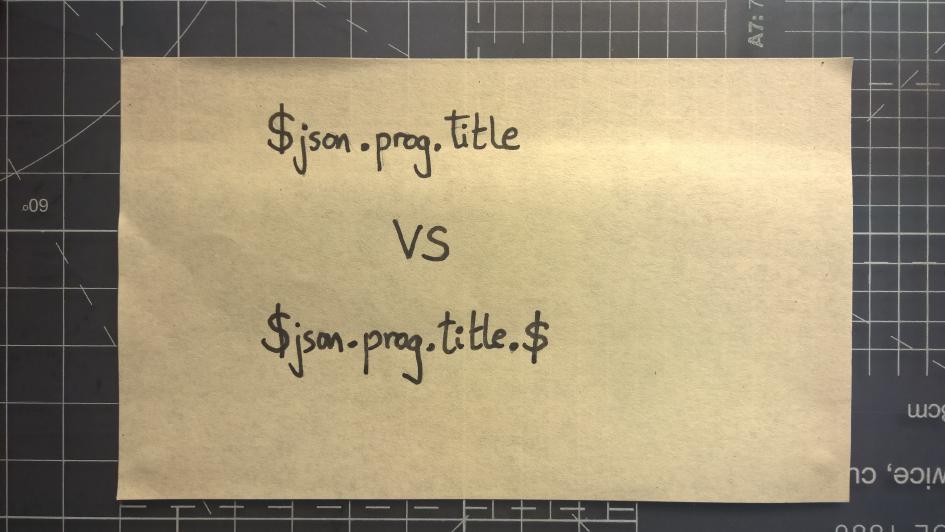 $json.prog.title
VS
$json.prog.title.$
A7:7
60°